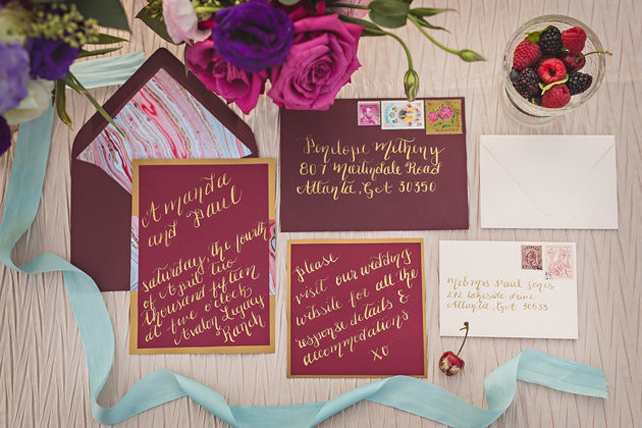 Amanda
and Paul
saturday, the fourth
of April two
thousand fifteen
at five o'clock
Avalon Legacy
Ranch
Penelope Metheny
807 Martindale Road
Atlanta, GA 30350
please
visit our wedding
website for all the
response details &
accommodations
XO
Mr & Mrs Paul Jones
272 lakeside drive
Atlanta, GA 30533